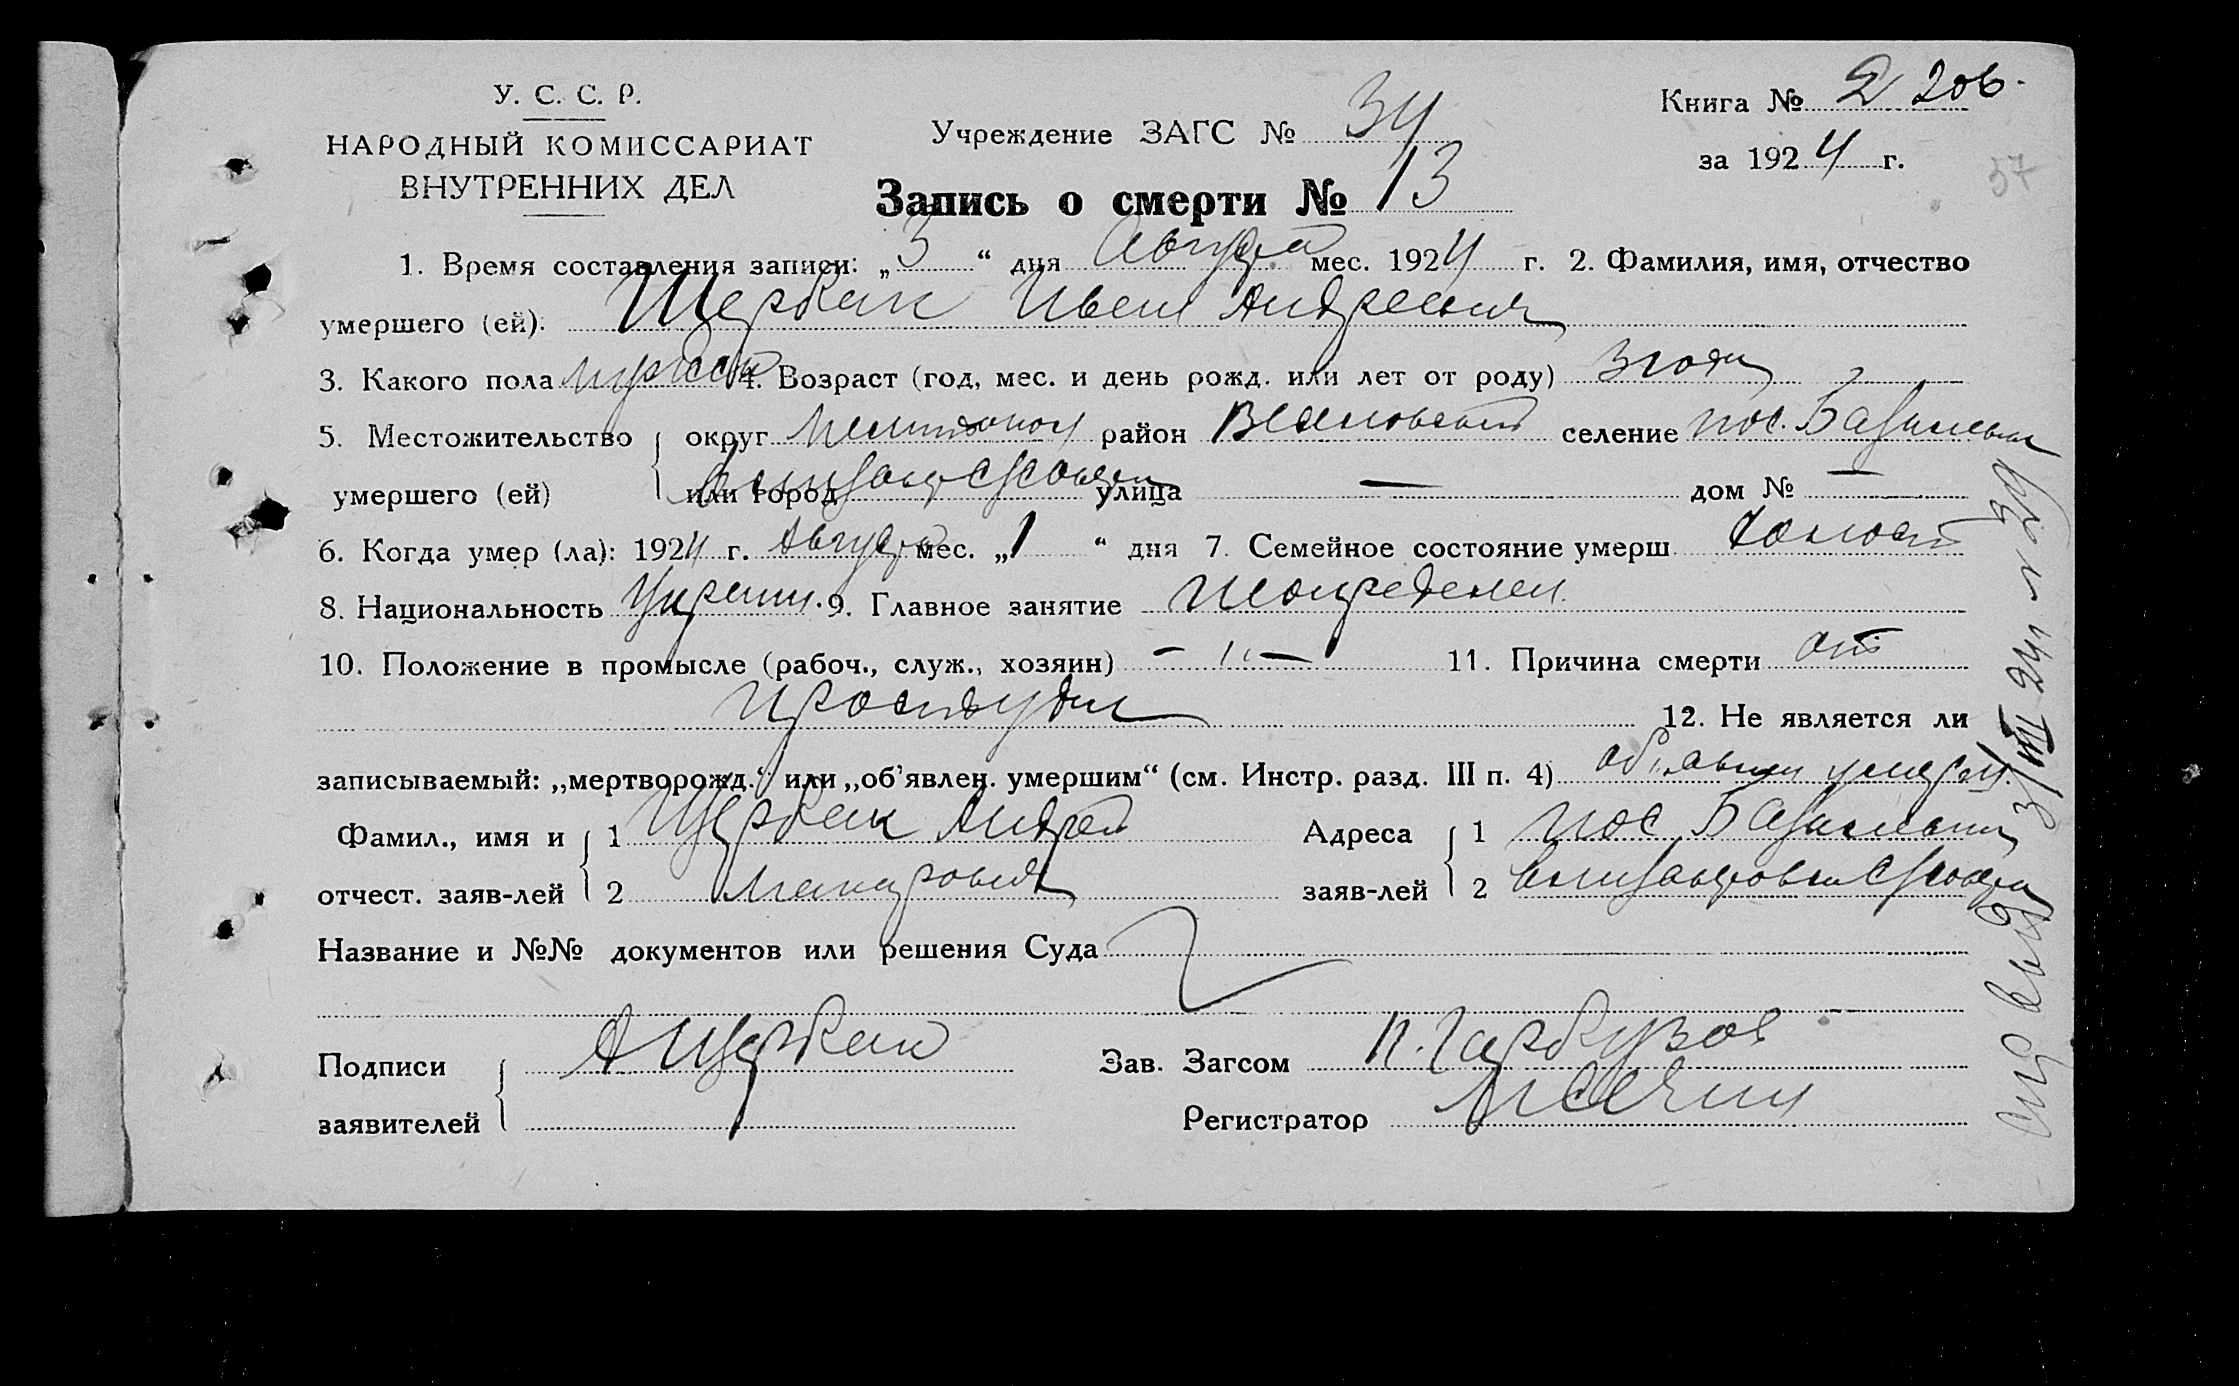 У. С. С. Р.
НАРОДНЫЙ КОМИССАРИАТ
ВНУТРЕННИХ ДЕЛ
Учреждение ЗАГС № 34
Книга № 2
за 1924 г.
57
Запись о смерти № 13
1. Время составления записи: „3“ дня Августа мес. 1924 г. 2. Фамилия, имя, отчество
умершего (ей): Щербак Иван Андреевич
3. Какого пола мужск 4. Возраст (год, мес. и день рожд. или лет от роду) 3 года
5. Местожительство округ Мелитопол район селение пос.
умершего (ей) или город улица — дом № —
6. Когда умер (ла): 1924 г. Августа мес. „1“ дня 7. Семейное состояние умерш. холост
8. Национальность Украин. 9. Главное занятие
10. Положение в промысле (рабоч., служ., хозяин) — „ — 11. Причина смерти от
простуды 12. Не является ли
записываемый: „мертворожд.“ или „об’явлен. умершим“ (см. Инстр. разд. III п. 4)
Фамил., имя и 1 Щербак Андрей Адреса 1 пос
отчест. заяв-лей 2 Макарович заяв-лей 2
Название и №№ документов или решения Суда
Подписи А Щербак Зав. Загсом П. Гарбузов
заявителей Регистратор